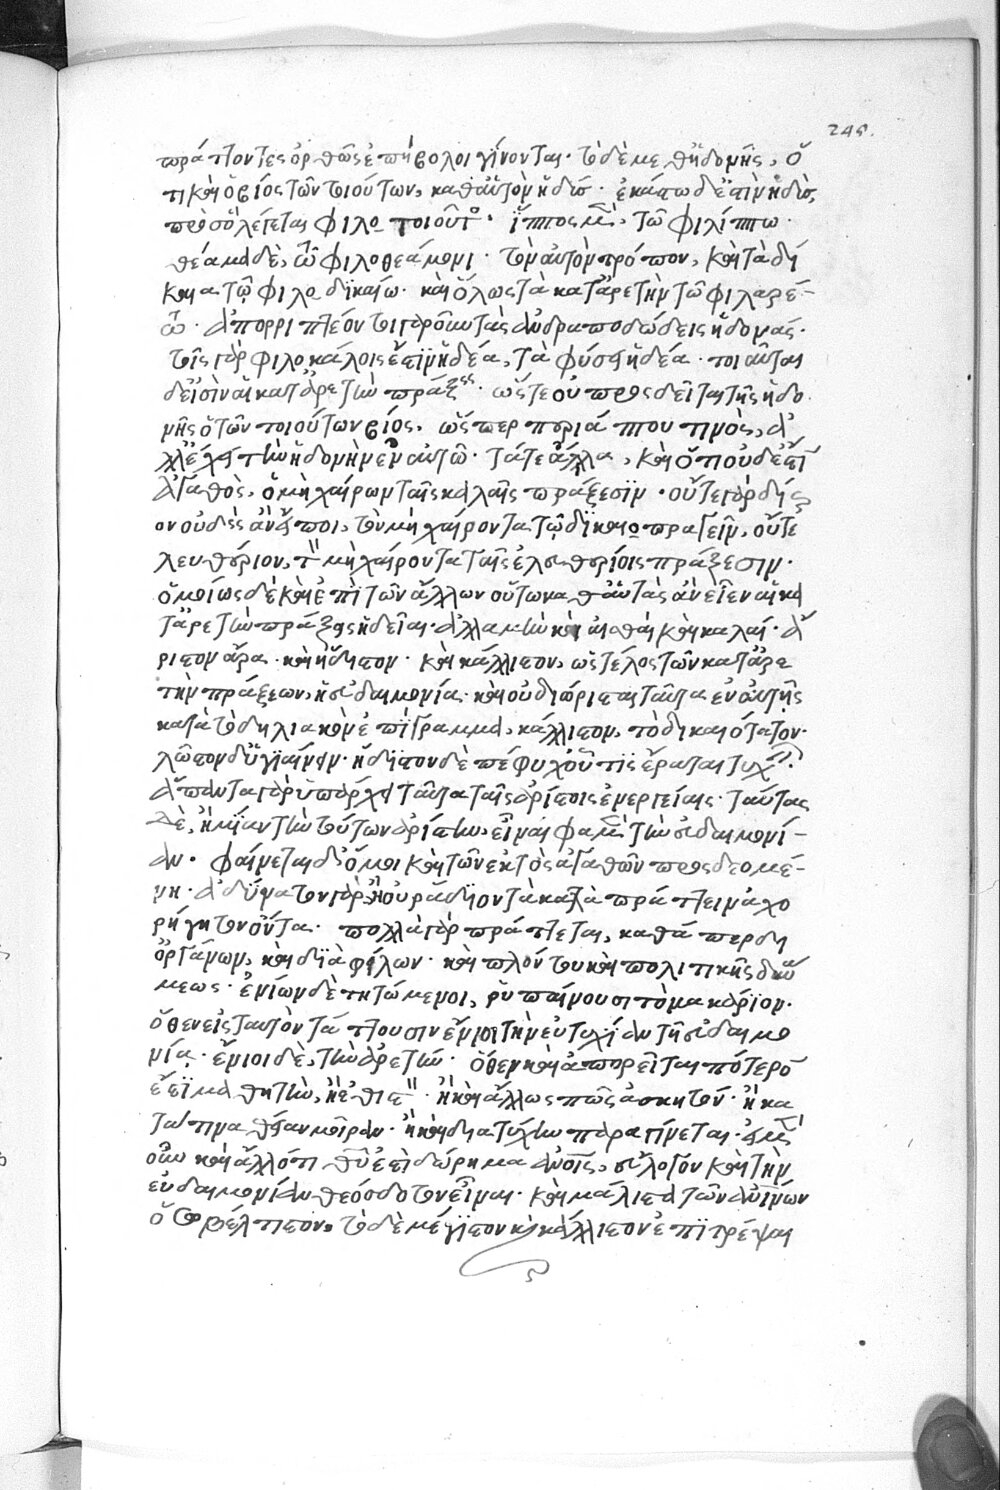 245.
πράττοντες ὀρθῶς ἐπήβολοι γίνονται· τὸ δὲ μεθ' ἡδονῆς, ὅ
τι καὶ ὁ βίος τῶν τοιούτων, καθ' αὑτὸν ἡδύς· ἑκάστω δέ ἐστιν ἡδὺ,
πρὸς ὃ λέγεται φιλοτοιοῦτος· ἵππος μὲν, τῶ φιλίππω·
θέαμα δὲ, τῶ φιλοθεάμονι· τὸν αὐτὸν τρόπον, καὶ τὰ δί
καια τῶ φιλοδικαίω· καὶ ὅλως τὰ κατ' ἀρετὴν τῶ φιλαρέ-
τω· ἀπορριπτέον τοιγαροῦν τὰς ἀνδραποδώδεις ἡδονάς·
τοῖς γὰρ φιλοκάλοις ἐστὶν ἡδέα, τὰ φύσει ἡδέα· τοιαῦται
δ' εἰσὶν αἱ κατ' ἀρετὴν πράξεις· ὥστε οὐ προσδεῖται τῆς ἡδο
νῆς ὁ τῶν τοιούτων βίος, ὥσπερ περιάπτου τινὸς, ἀ
λλ' ἔχει τὴν ἡδονὴν ἐν αὑτῶ· τά τε ἄλλα, καὶ ὅτι οὐδέ ἐστι
ἀγαθὸς, ὁ μὴ χαίρων ταῖς καλαῖς πράξεσιν· οὔτε γὰρ δίκαι
ον οὐδεὶς ἂν εἴποι, τὸν μὴ χαίροντα τῶ δικαιοπραγεῖν, οὔτε
λευθέριον, τὸν μὴ χαίροντα ταῖς ἐλευθερίοις πράξεσιν·
ὁμοίως δὲ καὶ ἐπὶ τῶν ἄλλων οὕτω καθ' αὑτὰς ἂν εἶεν αἱ κα
τ' ἀρετὴν πράξεις ἡδεῖαι· ἀλλὰ μὴν καὶ ἀγαθαὶ καὶ καλαί· ἄ
ριστον ἄρα· καὶ ἥδιστον· καὶ κάλλιστον, ὡς τέλος τῶν κατ' ἀρε
τὴν πράξεων, ἡ εὐδαιμονία· καὶ οὐ διώρισται ταῦτα ἐν αὐτῆς
κατὰ τὸ δηλιακὸν ἐπίγραμμα, κάλλιστον, τὸ δικαιότατον·
λῶστον δ' ὑγιαίνειν· ἥδιστον δὲ πέφυχ' οὗ τις ἔραται τυχεῖν·
ἅπαντα γὰρ ὑπάρχει ταῦτα ταῖς ἀρίσταις ἐνεργείαις· ταύτας
δὲ, ἢ μίαν τὴν τούτων ἀρίστην, εἶναι φαμὲν τὴν εὐδαιμονί-
αν· φαίνεται δ' ὅμως καὶ τῶν ἐκτὸς ἀγαθῶν προσδεομέ-
νη· ἀδύνατον γὰρ ἢ οὐ ῥάδιον τὰ καλὰ πράττειν ἀχο
ρήγητον ὄντα· πολλὰ γὰρ πράττεται, καθάπερ δι'
ὀργάνων, καὶ διὰ φίλων· καὶ πλούτου καὶ πολιτικῆς δυνά
μεως· ἐνίων δὲ τητώμενοι, ῥυπαίνουσι τὸ μακάριον·
ὅθεν εἰς ταυτὸν τάττουσιν ἔνιοι τὴν εὐτυχίαν τῆ εὐδαιμο
νία· ἔνιοι δὲ, τὴν ἀρετήν· ὅθεν καὶ ἀπορεῖται πότερόν
ἐστι μαθητὸν, ἢ ἐθιστὸν· ἢ καὶ ἄλλως πῶς ἀσκητόν· ἢ κα
τά τινα θείαν μοῖραν· ἢ καὶ διὰ τύχην παραγίνεται· εἰ μὲν
οὖν καὶ ἄλλό τι θεῶν ἐστὶ δώρημα ἀνθρώποις, εὔλογον καὶ τὴν
εὐδαιμονίαν θεόσδοτον εἶναι· καὶ μάλιστα τῶν ἀνθρωπίνων
ὅσω βέλτιστον, τὸ δὲ μέγιστον καὶ κάλλιστον ἐπιτρέψαι